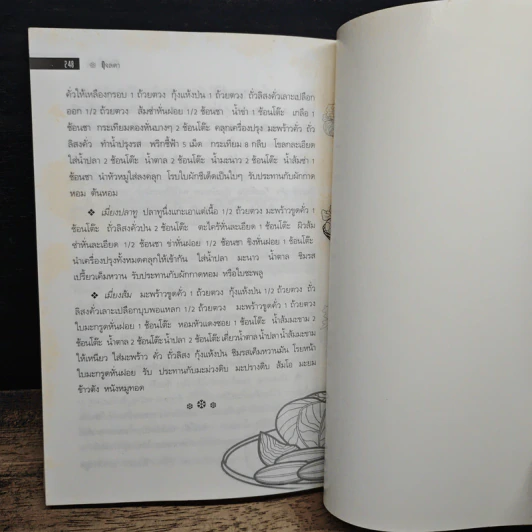 240
คั่วให้เหลืองกรอบ 1 ถ้วยตวง กุ้งแห้งป่น 1 ถ้วยตวง ถั่วลิสงคั่วเลาะเปลือก
ออก 1/2 ถ้วยตวง ส้มซ่าหั่นฝอย 1/2 ช้อนชา น้ำข่า 1 ช้อนโต๊ะ เกลือ 1
ช้อนชา กระเทียมดองหั่นบางๆ 2 ช้อนโต๊ะ คลุกเครื่องปรุง มะพร้าวคั่ว ถั่ว
ลิสงคั่ว ทำน้ำปรุงรส พริกชี้ฟ้า 5 เม็ด กระเทียม 8 กลีบ โขลกละเอียด
ใส่น้ำปลา 2 ช้อนโต๊ะ น้ำตาล 2 ช้อนโต๊ะ น้ำมะนาว 2 ช้อนโต๊ะ น้ำส้มซ่า 1
ช้อนชา นำหัวหมูใส่ลงคลุก โรยใบผักชีเด็ดเป็นใบๆ รับประทานกับผักกาด
หอม ต้นหอม
❖ เมี่ยงปลาทู ปลาทูนึ่งแกะเอาแต่เนื้อ 1/2 ถ้วยตวง มะพร้าวขูดคั่ว 1
ช้อนโต๊ะ ถั่วลิสงคั่วป่น 2 ช้อนโต๊ะ ตะไคร้หั่นละเอียด 1 ช้อนโต๊ะ ผิวส้ม
ซ่าหั่นละเอียด 1/2 ช้อนชา ข่าหั่นฝอย 1/2 ช้อนชา ขิงหั่นฝอย 1 ช้อนโต๊ะ
นำเครื่องปรุงทั้งหมดคลุกให้เข้ากัน ใส่น้ำปลา มะนาว น้ำตาล ชิมรส
เปรี้ยวเค็มหวาน รับประทานกับผักกาดหอม หรือใบชะพลู
❖ เมี่ยงส้ม มะพร้าวขูดคั่ว 1 ถ้วยตวง กุ้งแห้งป่น 1/2 ถ้วยตวง ถั่ว
ลิสงคั่วเลาะเปลือกบุบพอแหลก 1/2 ถ้วยตวง มะพร้าวขูดคั่ว 1 ถ้วยตวง
ใบมะกรูดหั่นฝอย 1 ช้อนโต๊ะ หอมหัวแดงซอย 1 ช้อนโต๊ะ น้ำส้มมะขาม 2
ช้อนโต๊ะ น้ำตาล 2 ช้อนโต๊ะ น้ำปลา 2 ช้อนโต๊ะ เคี่ยวน้ำตาล น้ำปลา น้ำส้มมะขาม
ให้เหนียว ใส่มะพร้าว คั่ว ถั่วลิสง กุ้งแห้งป่น ชิมรสเค็มหวานมัน โรยหน้า
ใบมะกรูดหั่นฝอย รับ ประทานกับมะม่วงดิบ มะปรางดิบ ส้มโอ มะยม
ข้าวตัง หนังหมูทอด